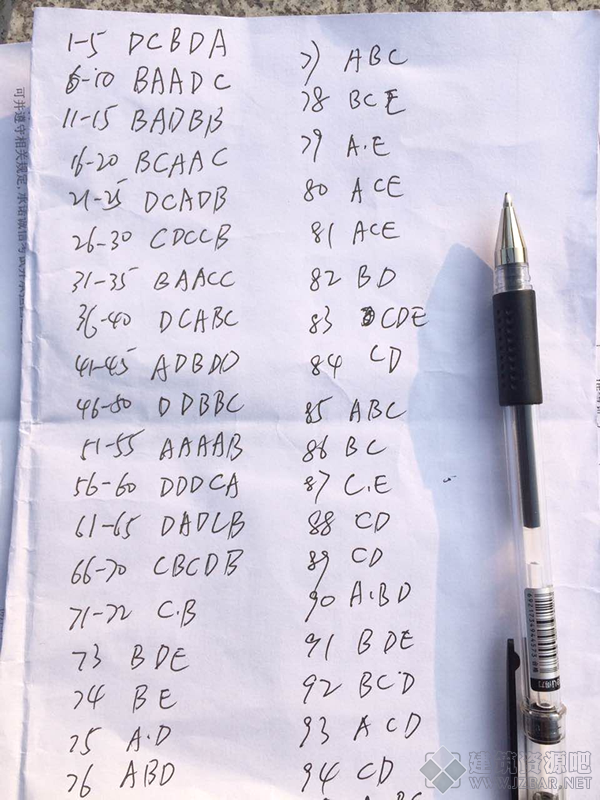 1-5 DCBDA
6-10 BAADC
11-15 BADBB
16-20 BCAAC
21-25 DCADB
26-30 CDCCB
31-35 BAACC
36-40 DCABC
41-45 ADBDD
46-50 DDBBC
51-55 AAAAB
56-60 DDDCA
61-65 DADCB
66-70 CBCDB
71-72 C.B
73 BDE
74 BE
75 A.D
76 ABD
77 ABC
78 BCE
79 A.E
80 ACE
81 ACE
82 BD
83 CDE
84 CD
85 ABC
86 BC
87 C.E
88 CD
89 CD
90 A.BD
91 BDE
92 BCD
93 ACD
94 CD
ABC
可并遵守相关规定,承诺诚信考试并
建筑资源吧
WWW.JZBAR.NET